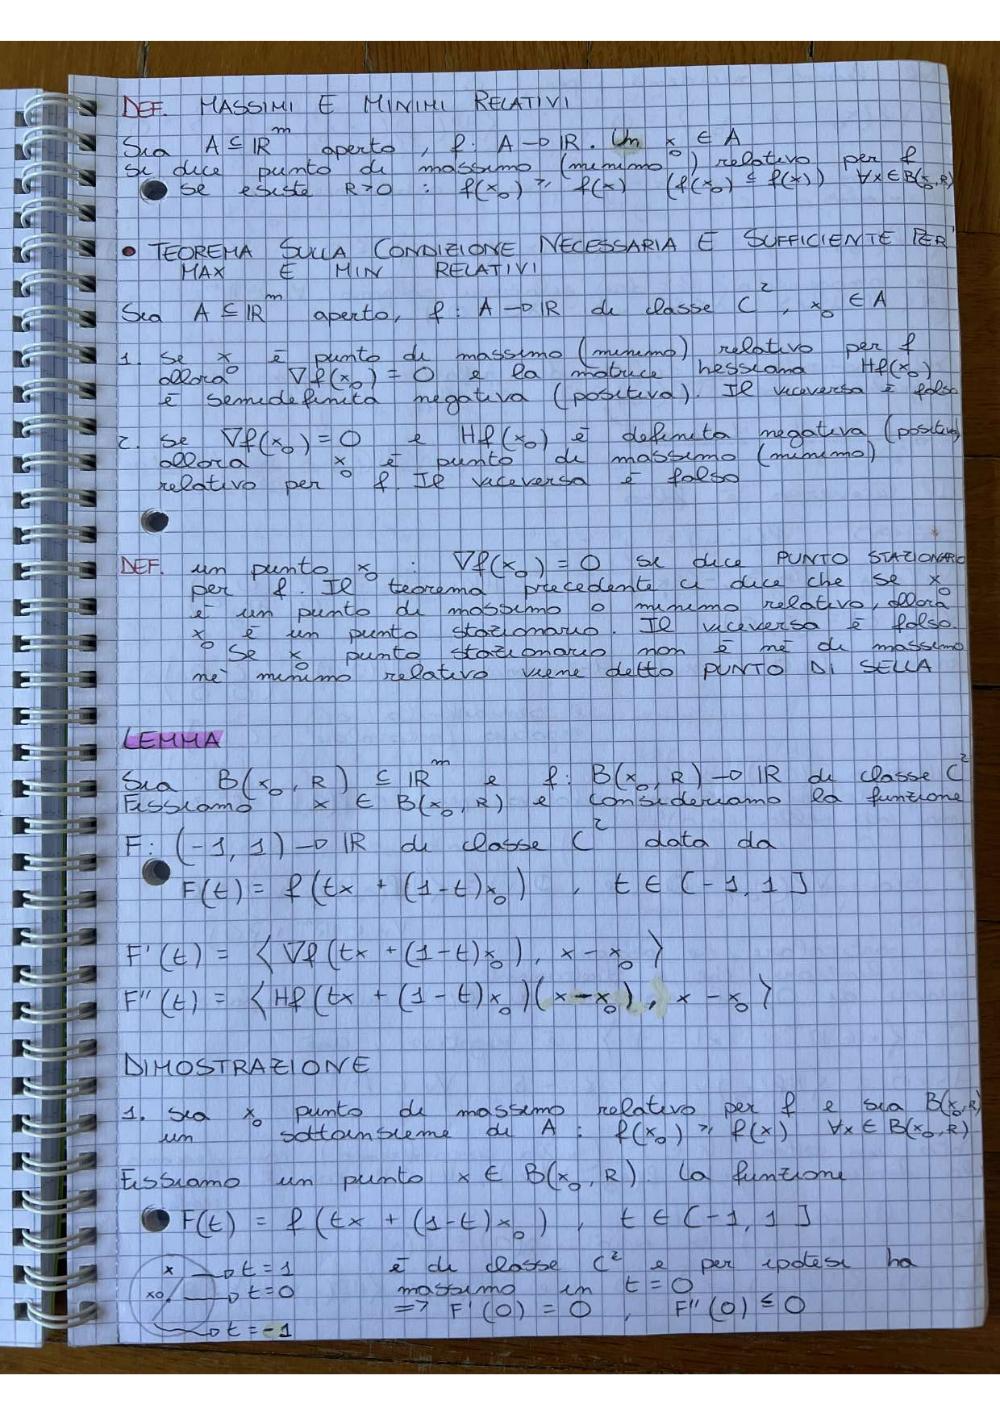 DEF. MASSIMI E MINIMI RELATIVI
Sia A ⊆ ℝᵐ aperto, f: A → ℝ. Un x₀ ∈ A
si dice punto di massimo (minimo) relativo per f
se esiste R>0 : f(x₀) ≥ f(x) (f(x₀) ≤ f(x)) ∀x∈B(x₀,R)
• TEOREMA SULLA CONDIZIONE NECESSARIA E SUFFICIENTE PER
MAX E MIN RELATIVI
Sia A ⊆ ℝᵐ aperto, f: A → ℝ di classe C², x₀ ∈ A
1. se x₀ è punto di massimo (minimo) relativo per f
allora ∇f(x₀) = 0 e la matrice hessiana Hf(x₀)
è semidefinita negativa (positiva). Il viceversa è falso
2. se ∇f(x₀) = 0 e Hf(x₀) è definita negativa (positiva)
allora x₀ è punto di massimo (minimo)
relativo per f. Il viceversa è falso
DEF. un punto x₀ : ∇f(x₀) = 0 si dice PUNTO STAZIONARIO
per f. Il teorema precedente ci dice che se x₀
è un punto di massimo o minimo relativo, allora
x₀ è un punto stazionario. Il viceversa è falso.
Se x₀ punto stazionario non è né di massimo
né minimo relativo viene detto PUNTO DI SELLA
LEMMA
Sia B(x₀, R) ⊆ ℝᵐ e f: B(x₀, R) → ℝ di classe C²
Fissiamo x ∈ B(x₀, R) e consideriamo la funzione
F: (-1, 1) → ℝ di classe C² data da
F(t) = f(tx + (1-t)x₀), t ∈ [-1, 1]
F'(t) = ⟨∇f(tx + (1-t)x₀), x - x₀⟩
F''(t) = ⟨Hf(tx + (1-t)x₀)(x-x₀), x - x₀⟩
DIMOSTRAZIONE
1. sia x₀ punto di massimo relativo per f e sia B(x₀,R)
un sottoinsieme di A : f(x₀) ≥ f(x) ∀x ∈ B(x₀, R)
Fissiamo un punto x ∈ B(x₀, R). La funzione
F(t) = f(tx + (1-t)x₀), t ∈ [-1, 1]
x → t = 1 è di classe C² e per ipotesi ha
x₀ → t = 0 massimo in t = 0
→ t = -1 => F'(0) = 0, F''(0) ≤ 0